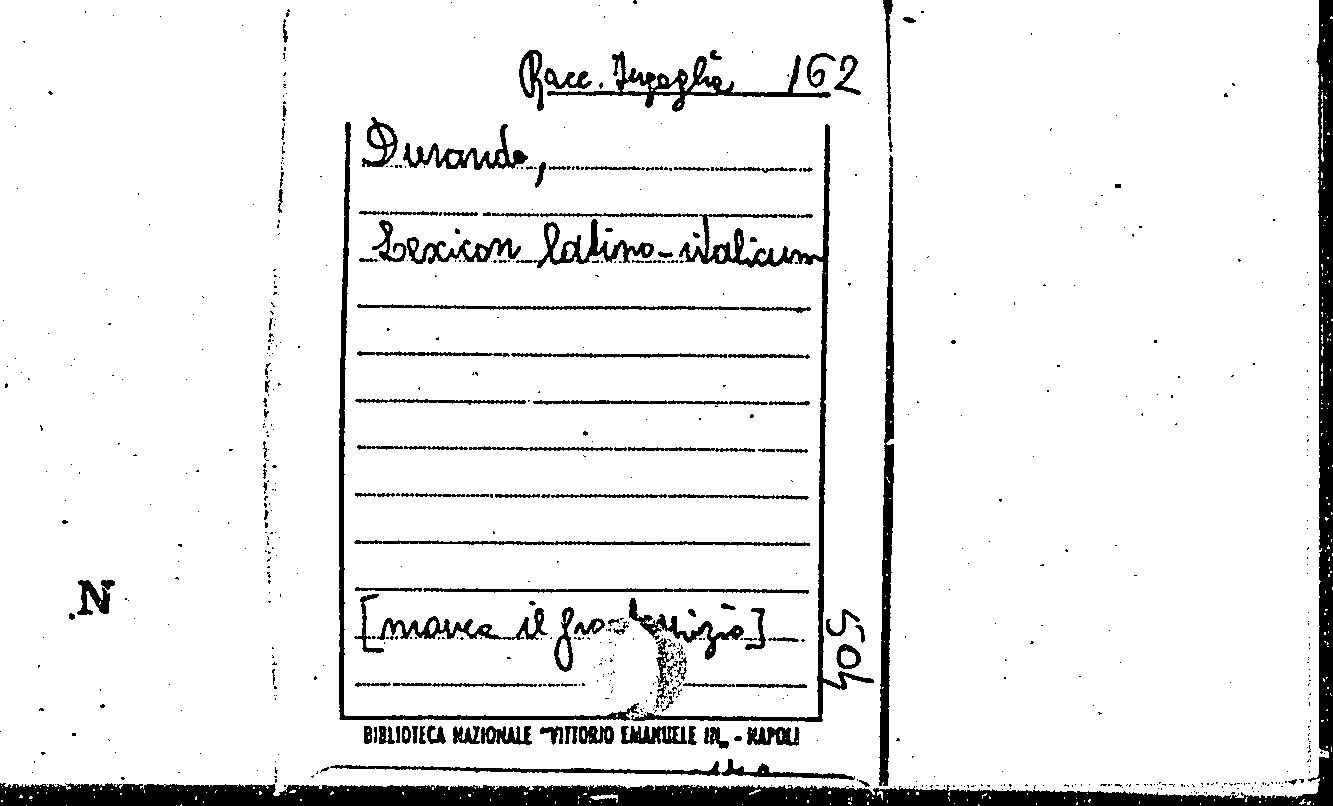 Racc. Tursaglia 162
Durando,
Lexicon latino-italicum
[manca il frontespizio]
504
BIBLIOTECA NAZIONALE "VITTORIO EMANUELE III„ - NAPOLI
N